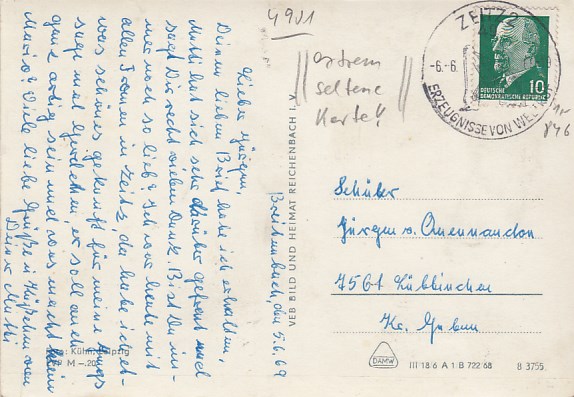 4901
extrem
seltene
Karte!!
ZEITZ 2
-6.-6.
ERZEUGNISSE VON WELTRUF
DEUTSCHE
DEMOKRATISCHE REPUBLIK
10
Breitenbach, den 5.6.69
Lieber Jürgen,
Deinen lieben Brief habe ich erhalten,
Mutti hat sich sehr darüber gefreut und
sagt Dir recht vielen Dank. Bist Du im-
mer noch so lieb? Ich war heute mit
allen Frauen in Zeitz, da habe ich et-
was schönes gekauft für meine Jungs
sage mal Lutzchen, er soll auch
ganz artig sein und was macht klein
Mario? Viele liebe Grüße u. Küßchen von
Deiner Mutti
VEB BILD UND HEIMAT REICHENBACH I. V.
Schüler
Jürgen v.
7561 Lübbinchen
Kr. Guben
Kühn, Leipzig
DAMW
III 18 6 A 1 B 722 68
B 3755